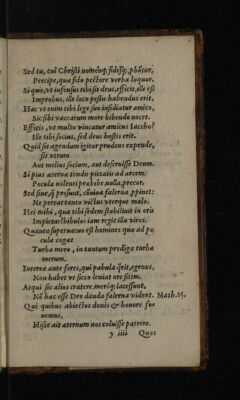 Sed tu, cui Christi nomenq; fidesq; phãtur,
Percipe, quæ fido pectore verba loquor.
Si quis, vt infensus tibi sit deus, efficit, ille est
Improbus, ille loco pestis habendus erit.
Hac vt enim tibi lege sua insidiatur amico,
Sic sibi vaccarum more bibendo nocet.
Efficis, vt multo vincatur amicus Iaccho?
Ille tibi socius, sed deus hostis erit.
Quid sit agendum igitur prudens expende,
sit vtrum
Aut melius socium, aut deseruisse Deum.
Si pius æternæ tendis pietatis ad arcem:
Pocula nolenti præbibe nulla, precor.
Sed sine, q̃ prosunt, cõuiua falerna ppinet:
Ne pereat tanto victus vterque malo.
Hei mihi, quæ tibi sedem stabiliuit in oris
Impietas? bibulos iam regit illa viros.
Quanta superuacuo est homines quæ ad po
cula cogat
Turba mero, in tantum prodiga turba
merum.
Interea ante fores, qui pabula q̃rit, egenus,
Non habet vt sicco leniat ore sitim.
Atqui sic alios cratere, meroq; lacessunt,
Nõ hæc esse Deo danda falerna vident. Math.25.
Qui quibus abiectos donis & honore fo
uemus,
Hisce ait æternum nos coluisse patrem.
y iiii Quos